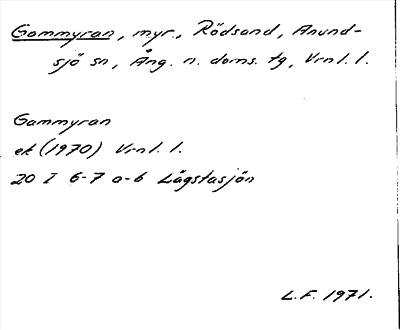 Gammyran, myr., Rödsand, Anund-
sjö sn, Ång. n. doms. tg, Vrnl. l.
Gammyran
ek (1970) Vrnl. l.
20 I 6-7 a-b Lägstasjön
L.F. 1971.